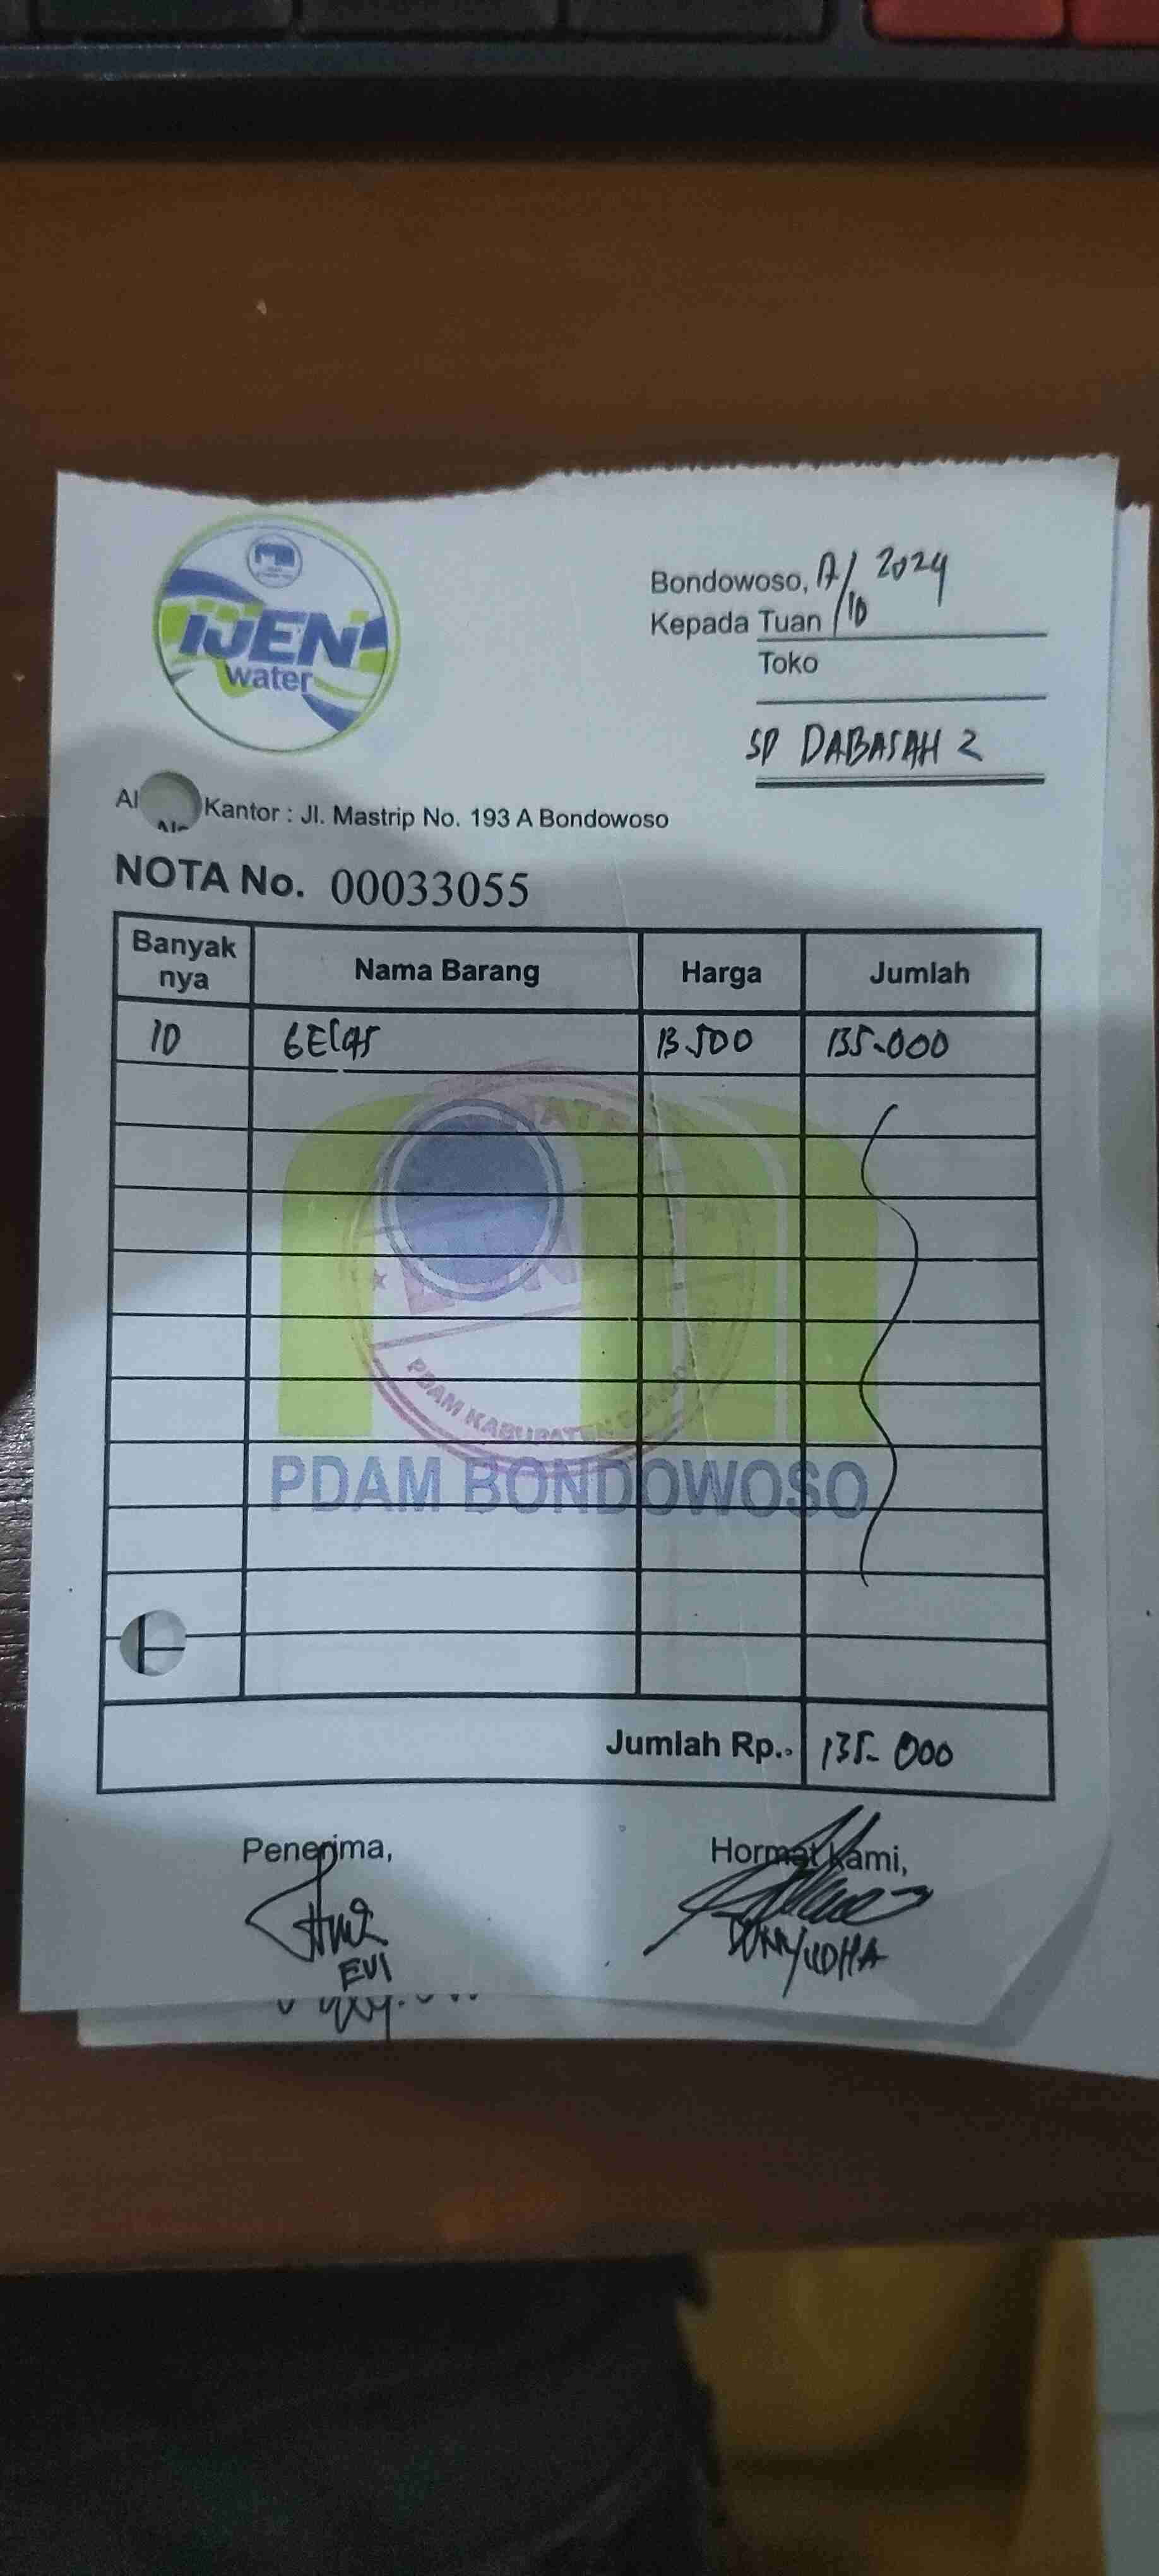 IJEN
water
Bondowoso, 17/10 2024
Kepada Tuan
Toko
SD DABASAH 2
Kantor : Jl. Mastrip No. 193 A Bondowoso
NOTA No. 00033055
Banyak nya Nama Barang Harga Jumlah
10 GELAS 13.500 135.000
PDAM KABUPATEN
PDAM BONDOWOSO
Jumlah Rp.. 135.000
Penerima, Hormat Kami,
EVI